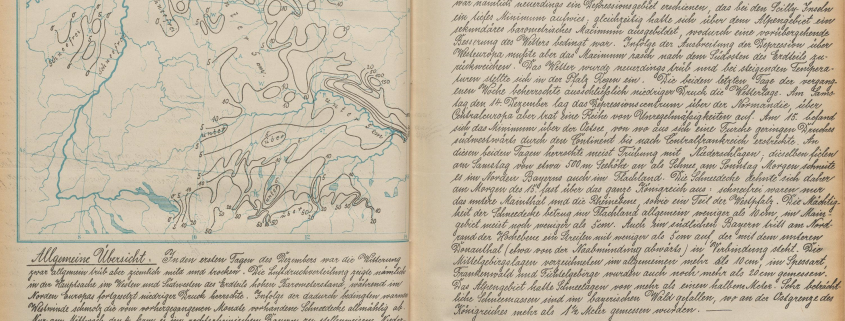 war nämlich neuerdings ein Depressionsgebiet erschienen, das bei den Scilly Inseln
ein tiefes Minimum aufwies, gleichzeitig hatte sich über dem Alpengebiet ein
sekundäres barometrisches Maximum ausgebildet, wodurch eine vorübergehende
Besserung des Wetters bedingt war. Infolge der Ausbreitung der Depression über
Westeuropa mußte aber das Maximum rasch nach dem Südosten des Erdteils zu-
rückweichen. Das Wetter wurde neuerdings trüb und bei steigenden Tempera-
turen stellte sich in der Pfalz Regen ein. Die beiden letzten Tage der vergang-
enen Woche beherrschte ausschließlich niedriger Druck die Wetterlage. Am Sams-
tag den 14. Dezember lag das Depressionscentrum über der Normandie, über
Centraleuropa aber trat eine Reihe von Unregelmäßigkeiten auf. Am 15. befand
sich das Minimum über der Ostsee, von wo aus sich eine Furche geringen Druckes
südwestwärts durch den Continent bis nach Centralfrankreich erstreckte. An
diesen beiden Tagen herrschte meist Trübung mit Niederschlägen, dieselben fielen
am Samstag von etwa 500 m Seehöhe an als Schnee, am Sonntag Morgen schneite
es im Norden Bayerns auch im Flachland. Die Schneedecke dehnte sich daher
am Morgen des 15ᵗ fast über das ganze Königreich aus: schneefrei waren nur
das untere Mainthal und die Rheinebene, sowie ein Teil der Westpfalz. Die Mächtig-
keit der Schneedecke betrug im Flachland allgemein weniger als 10 cm, im Main-
gebiet meist noch weniger als 5 cm. Auch im südlichen Bayern tritt am Nord-
rand der Hochebene ein Streifen mit weniger als 5 cm auf der mit dem unteren
Donauthal (eben von der Naabmündung abwärts) in Verbindung steht. Die
Mittelgebirgslagen verzeichneten im allgemeinen mehr als 10 cm, im Spessart,
Frankenwald und Fichtelgebirge wurden auch noch mehr als 20 cm gemessen.
Das Alpengebiet hatte Schneelagen von mehr als einem halben Meter. Sehr beträcht-
liche Schneemassen sind im bayerischen Wald gefallen, wo an der Ostgrenze des
Königreiches mehr als 1½ Meter gemessen wurden. —
Schneefrei
unter
über
unter
Allgemeine Übersicht. In den ersten Tagen des Dezembers war die Witterung
zwar allgemein trüb aber ziemlich mild und trocken. Die Luftdruckverteilung zeigte nämlich
in der Hauptsache im Westen und Südwesten des Erdteils hohen Barometerstand, während im
Norden Europas fortgesetzt niedriger Druck herrschte. Infolge der dadurch bedingten warmen
Westwinde schmolz die vom vorhergegangenen Monate vorhandene Schneedecke allmählig ab.